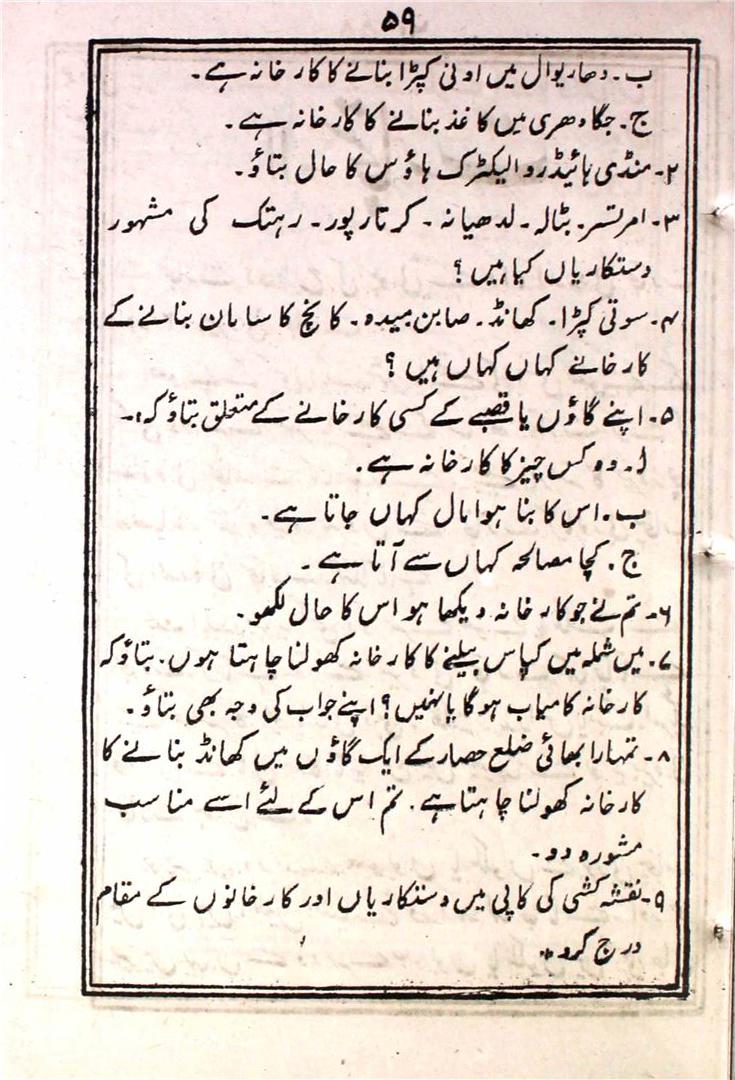 ۵۹
ب۔ دھاریوال میں اونی کپڑا بنانے کا کارخانہ ہے۔
ج۔ جگادھری میں کاغذ بنانے کا کارخانہ ہے۔
۲۔ منڈی ہائیڈرو الیکٹرک ہاؤس کا حال بتاؤ۔
۳۔ امرتسر۔ بٹالہ۔ لدھیانہ۔ کرتارپور۔ رہتک کی مشہور
دستکاریاں کیا ہیں؟
۴۔ سوتی کپڑا۔ کھانڈ۔ صابن۔ میدہ۔ کانچ کا سامان بنانے کے
کارخانے کہاں کہاں ہیں؟
۵۔ اپنے گاؤں یا قصبے کے کسی کارخانے کے متعلق بتاؤ کہ:۔
ا۔ وہ کس چیز کا کارخانہ ہے۔
ب۔ اس کا بنا ہوا مال کہاں جاتا ہے۔
ج۔ کچا مصالحہ کہاں سے آتا ہے۔
۶۔ تم نے جو کارخانہ دیکھا ہو اس کا حال لکھو۔
۷۔ میں شملہ میں کپاس بیلنے کا کارخانہ کھولنا چاہتا ہوں۔ بتاؤ کہ
کارخانہ کامیاب ہوگا یا نہیں؟ اپنے جواب کی وجہ بھی بتاؤ۔
۸۔ تمہارا بھائی ضلع حصار کے ایک گاؤں میں کھانڈ بنانے کا
کارخانہ کھولنا چاہتا ہے۔ تم اس کے لئے اسے مناسب
مشورہ دو۔
۹۔ نقشہ کشی کی کاپی میں دستکاریاں اور کارخانوں کے مقام
درج کرو۔